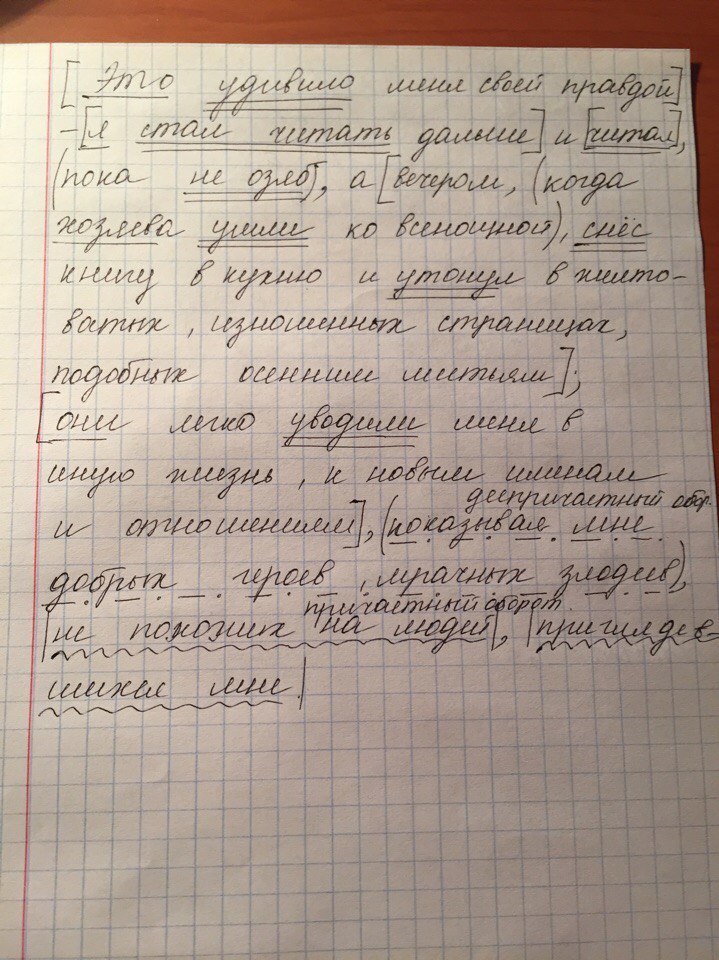 [Это удивило меня своей правдой]
– [я стал читать дальше] и [читал],
(пока не озяб), а [вечером, (когда
хозяева ушли ко всенощной), снёс
книгу в кухню и утонул в желто-
ватых, изношенных страницах,
подобных осенним листьям];
[они легко уводили меня в
иную жизнь, к новым именам
деепричастный обор.
и отношениям], (показывая мне
добрых героев, мрачных злодеев),
причастный оборот.
|не похожих на людей|, |пригляdев-
шихся мне.|